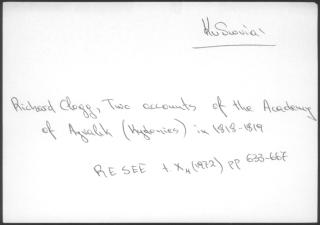 Κυδωνίαι
Richard Clogg, Two accounts of the Academy
of Ayvalik (Kydonies) in 1818-1819
RESEE t. X₄ (1972) pp 633-667